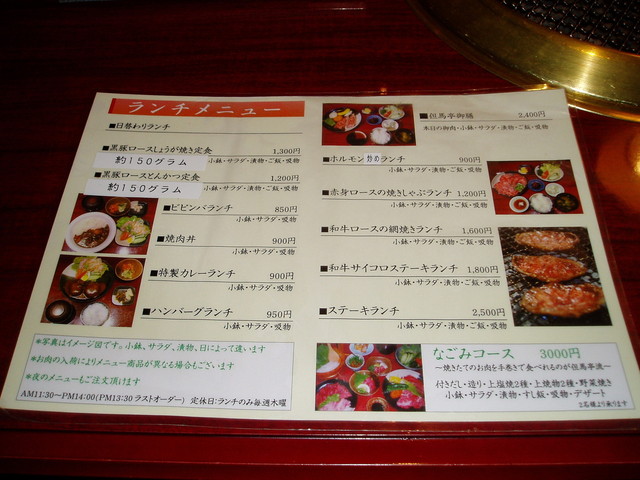 ランチメニュー
■日替わりランチ
■黒豚ロースしょうが焼き定食 1,300円
約150グラム 小鉢・サラダ・漬物・ご飯・吸物
■黒豚ロースとんかつ定食 1,200円
約150グラム 小鉢・サラダ・漬物・ご飯・吸物
■ビビンバランチ 850円
小鉢・サラダ・吸物
■焼肉丼 900円
小鉢・サラダ・吸物
■特製カレーランチ 900円
小鉢・サラダ・吸物
■ハンバーグランチ 950円
小鉢・サラダ・吸物
*写真はイメージ図です。小鉢、サラダ、漬物、日によって違います
*お肉の入荷によりメニュー商品が異なる場合もございます
*夜のメニューもご注文頂けます
AM11:30~PM14:00(PM13:30 ラストオーダー) 定休日:ランチのみ毎週木曜
■但馬亭御膳 2,400円
本日の御肉・小鉢・サラダ・漬物・ご飯・吸物
■ホルモン炒めランチ 900円
小鉢・サラダ・漬物・ご飯・吸物
■赤身ロースの焼きしゃぶランチ 1,200円
小鉢・サラダ・漬物・ご飯・吸物
■和牛ロースの網焼きランチ 1,600円
小鉢・サラダ・漬物・ご飯・吸物
■和牛サイコロステーキランチ 1,800円
小鉢・サラダ・漬物・ご飯・吸物
■ステーキランチ 2,500円
小鉢・サラダ・漬物・ご飯・吸物
なごみコース 3000円
~焼きたてのお肉を手巻きで食べれるのが但馬亭流~
付きだし・造り・上塩焼2種・上焼物2種・野菜焼き
小鉢・サラダ・漬物・すし飯・吸物・デザート
2名様より承ります